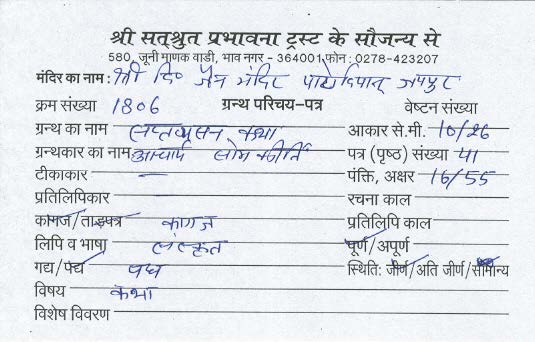 श्री सत्श्रुत प्रभावना ट्रस्ट के सौजन्य से
580, जूनी माणक वाडी, भाव नगर - 364001 फोन : 0278-423207
मंदिर का नाम : श्री दि० जैन मंदिर जयपुर
क्रम संख्या 1806 ग्रन्थ परिचय-पत्र वेष्टन संख्या
ग्रन्थ का नाम सप्तव्यसन कथा आकार से.मी. 10/26
ग्रन्थकार का नाम आचार्य सोम कीर्ति पत्र (पृष्ठ) संख्या 41
टीकाकार — पंक्ति, अक्षर 16/55
प्रतिलिपिकार रचना काल
कागज/ताड़पत्र कागज प्रतिलिपि काल
लिपि व भाषा संस्कृत पूर्ण/अपूर्ण
गद्य/पद्य पद्य स्थिति: जीर्ण/अति जीर्ण/सामान्य
विषय कथा
विशेष विवरण